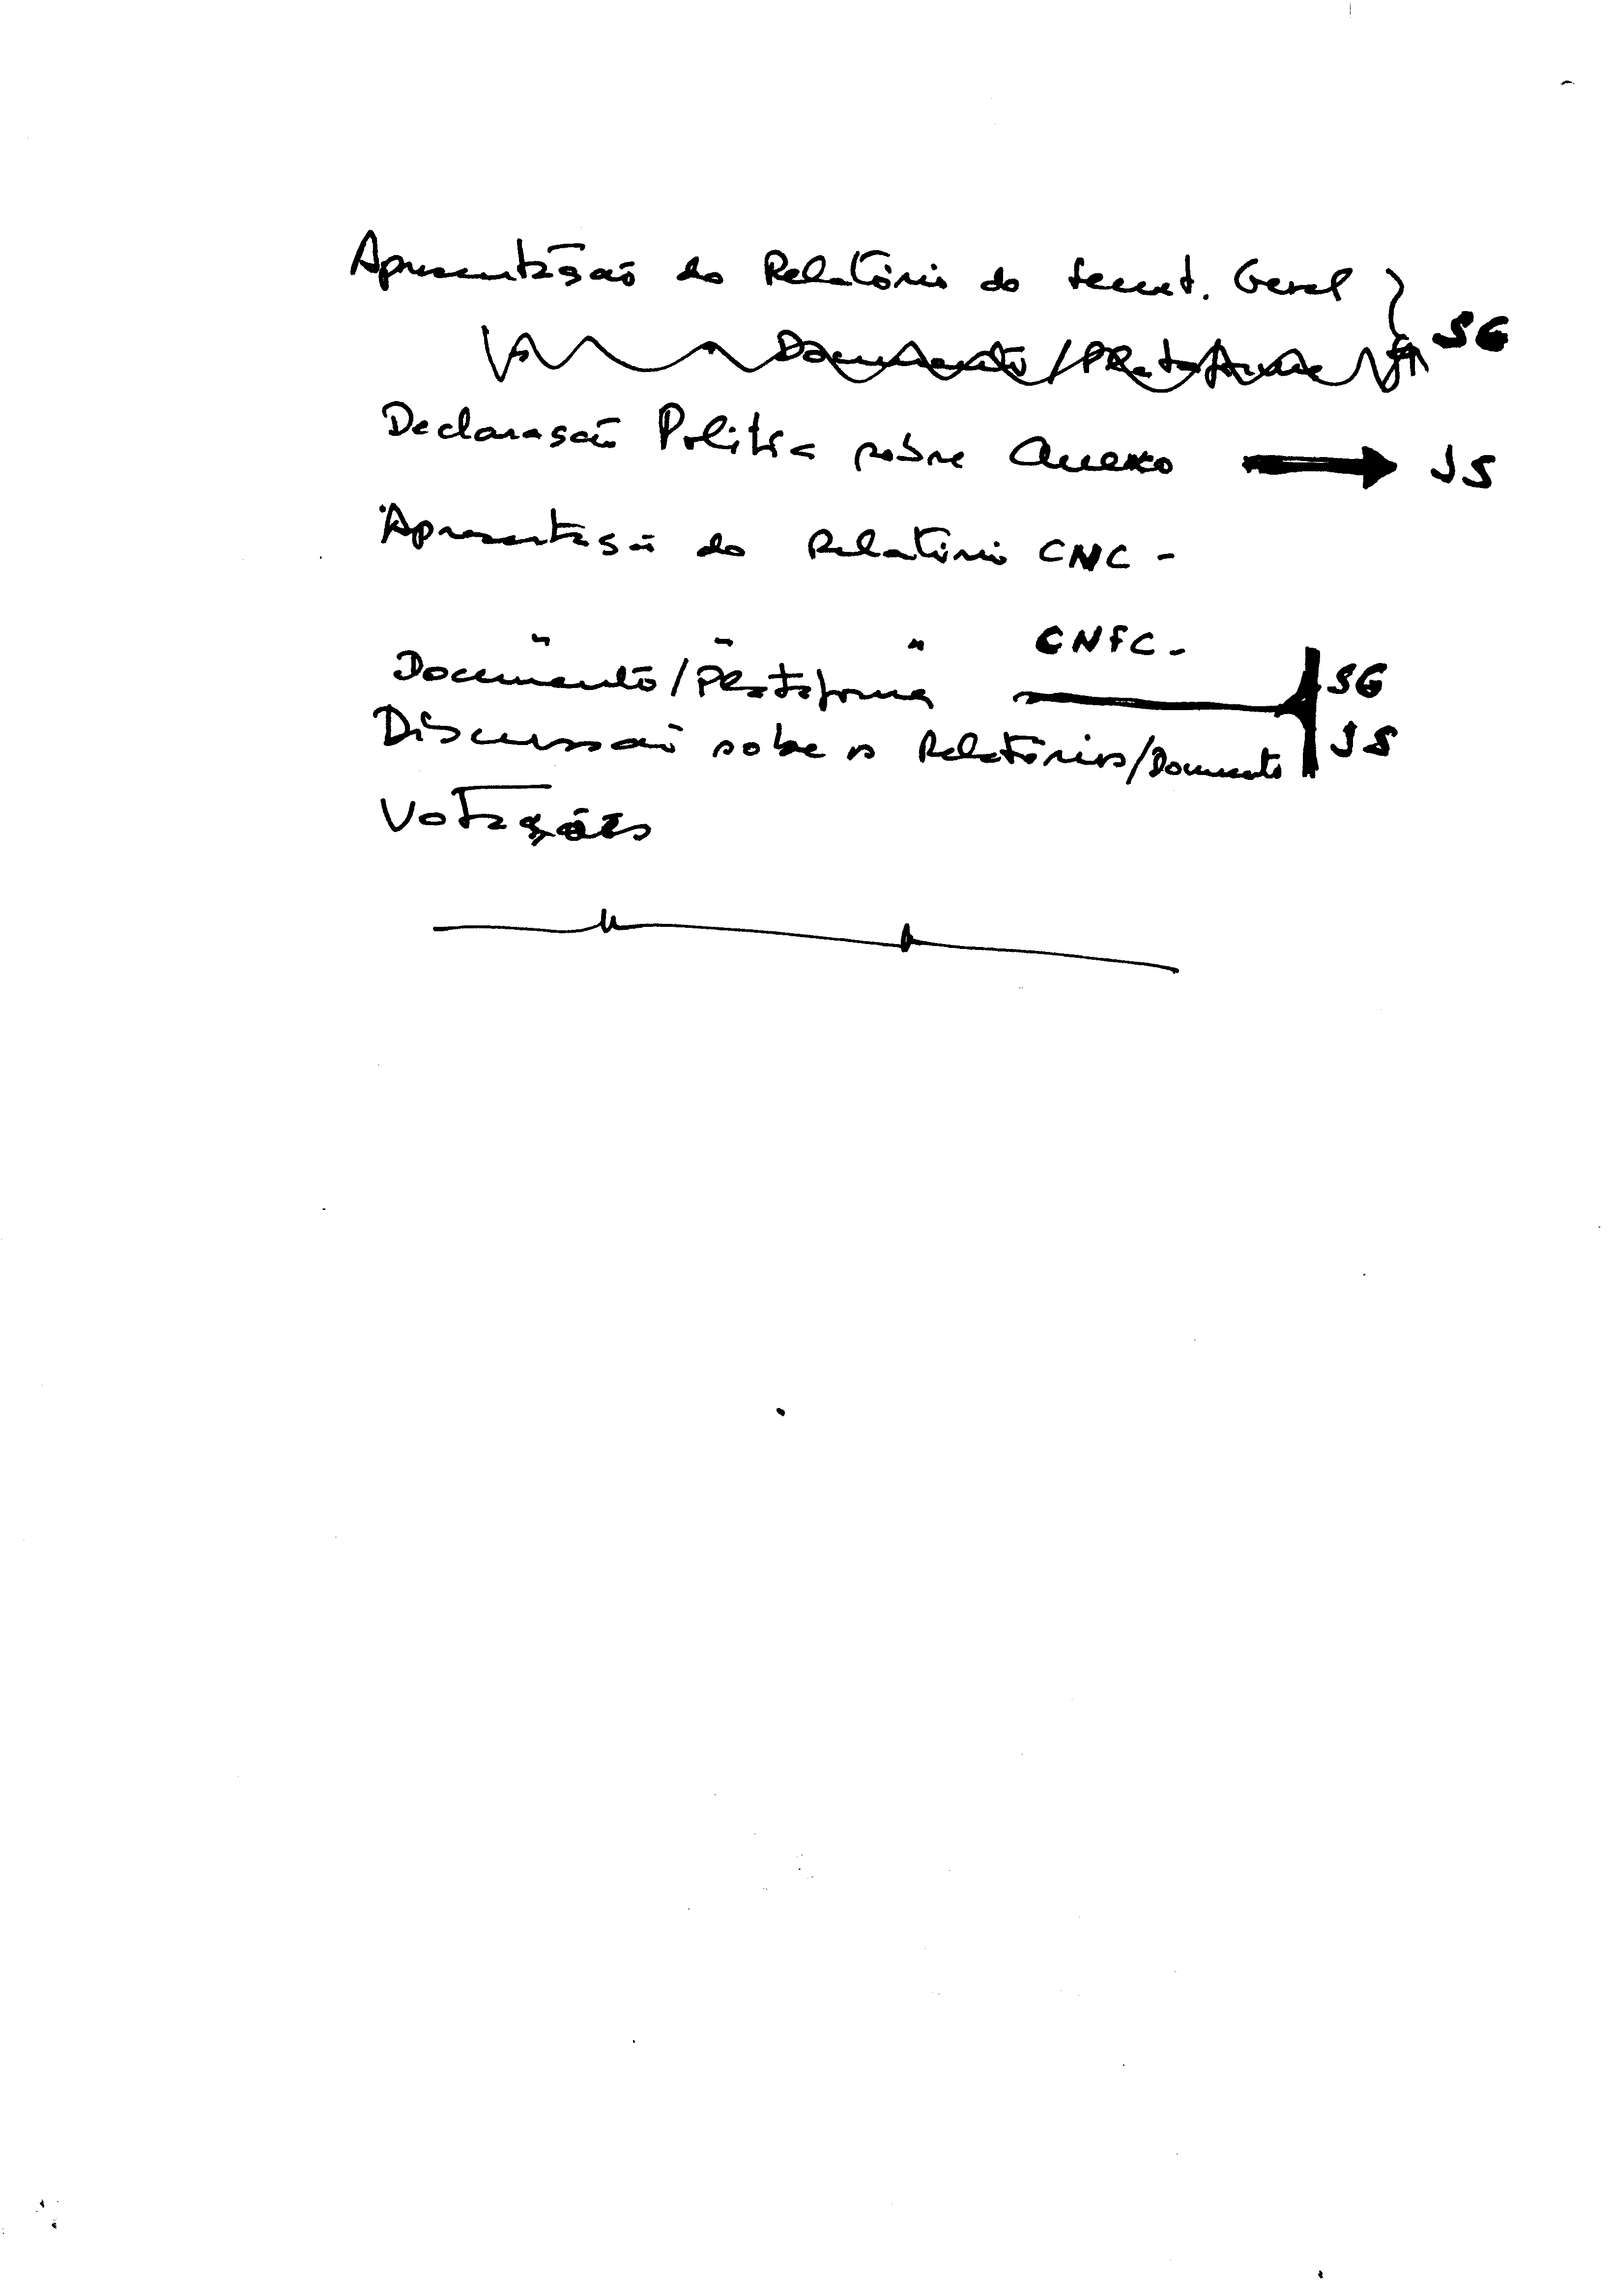 Apresentação do Relatório do Secret. Geral
SG
Documento/Plataforma
Declaração Politica sobre Anexo → JS
Apresentação do Relatório CNC -
" " " CNFC -
Documento/Plataforma SG
Discussão sobre os Relatórios/Documento JS
Votações